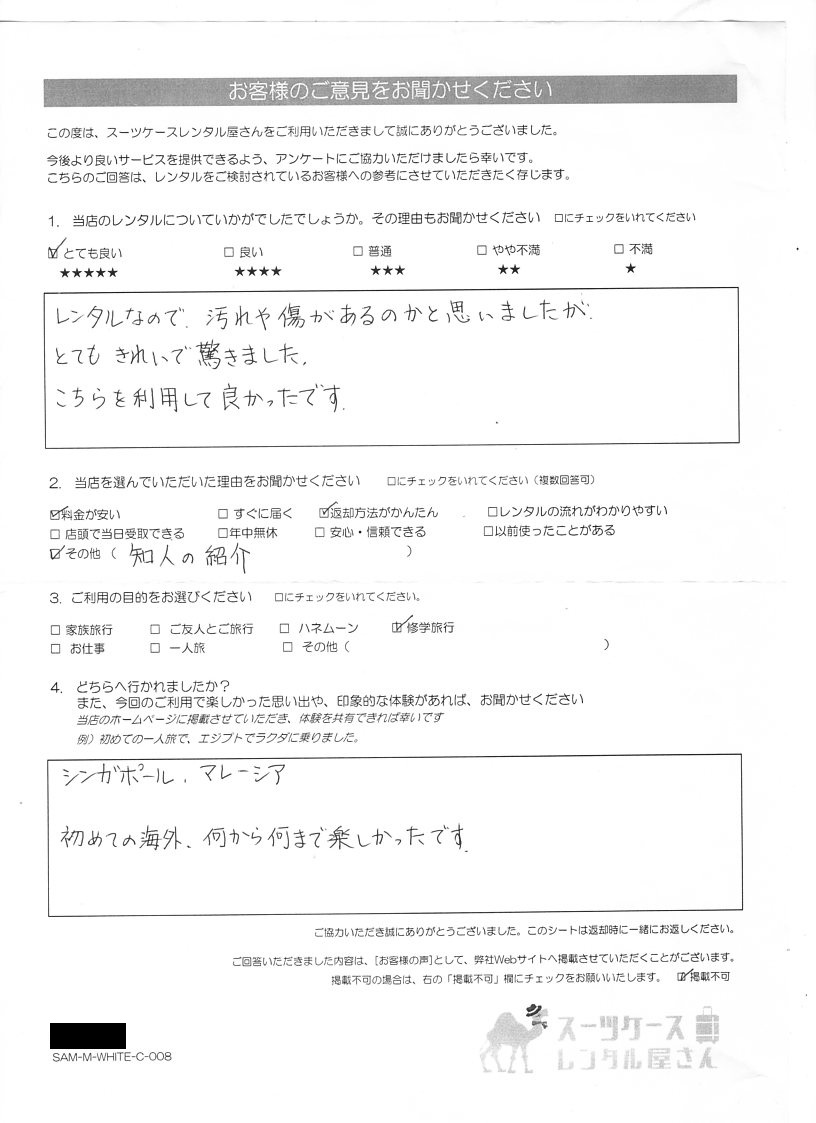 お客様のご意見をお聞かせください
この度は、スーツケースレンタル屋さんをご利用いただきまして誠にありがとうございました。
今後より良いサービスを提供できるよう、アンケートにご協力いただけましたら幸いです。
こちらのご回答は、レンタルをご検討されているお客様への参考にさせていただきたく存じます。
1. 当店のレンタルについていかがでしたでしょうか。その理由もお聞かせください □にチェックをいれてください
☑とても良い □ 良い □ 普通 □ やや不満 □ 不満
★★★★★ ★★★★ ★★★ ★★ ★
レンタルなので、汚れや傷があるのかと思いましたが、
とてもきれいで驚きました。
こちらを利用して良かったです。
2. 当店を選んでいただいた理由をお聞かせください □にチェックをいれてください（複数回答可）
☑料金が安い □ すぐに届く ☑返却方法がかんたん □レンタルの流れがわかりやすい
□ 店頭で当日受取できる □年中無休 □ 安心・信頼できる □以前使ったことがある
☑その他（ 知人の紹介 ）
3. ご利用の目的をお選びください □にチェックをいれてください。
□ 家族旅行 □ ご友人とご旅行 □ ハネムーン ☑修学旅行
□ お仕事 □ 一人旅 □ その他（ ）
4. どちらへ行かれましたか？
また、今回のご利用で楽しかった思い出や、印象的な体験があれば、お聞かせください
当店のホームページに掲載させていただき、体験を共有できれば幸いです
例）初めての一人旅で、エジプトでラクダに乗りました。
シンガポール、マレーシア
初めての海外、何から何まで楽しかったです。
ご協力いただき誠にありがとうございました。このシートは返却時に一緒にお返しください。
ご回答いただきました内容は、[お客様の声]として、弊社Webサイトへ掲載させていただくことがございます。
掲載不可の場合は、右の「掲載不可」欄にチェックをお願いいたします。 ☑掲載不可
SAM-M-WHITE-C-008
スーツケース
レンタル屋さん